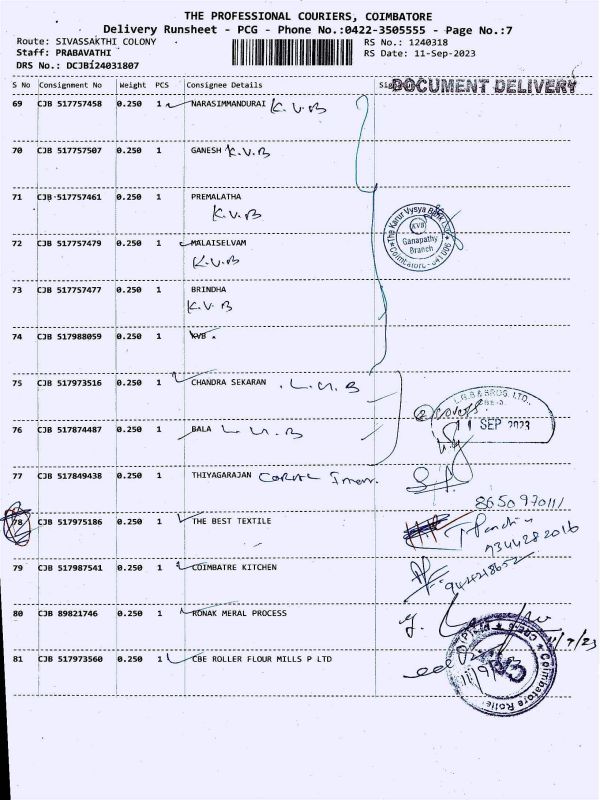 THE PROFESSIONAL COURIERS, COIMBATORE
Delivery Runsheet - PCG - Phone No.:0422-3505555 - Page No.:7
Route: SIVASSAKTHI COLONY
RS No.: 1240318
Staff: PRABAVATHI
RS Date: 11-Sep-2023
DRS No.: DCJBI24031807
S No Consignment No Weight PCS Consignee Details
DOCUMENT DELIVERY
69 CJB 517757458 0.250 1 NARASIMMANDURAI K.V.B
70 CJB 517757507 0.250 1 GANESH K.V.B
71 CJB 517757461 0.250 1 PREMALATHA
K.V.B
The Karur Vysya Bank
KVB
Ganapathy
Branch
Coimbatore - 641 006
72 CJB 517757479 0.250 1 MALAISELVAM
K.V.B
73 CJB 517757477 0.250 1 BRINDHA
K.V.B
74 CJB 517988059 0.250 1 KVB .
75 CJB 517973516 0.250 1 CHANDRA SEKARAN
L.G.B & BROS. LTD.,
11 SEP 2023
76 CJB 517874487 0.250 1 BALA
77 CJB 517849438 0.250 1 THIYAGARAJAN
8650970111
78 CJB 517975186 0.250 1 THE BEST TEXTILE
7344282016
79 CJB 517987541 0.250 1 COIMBATRE KITCHEN
80 CJB 89821746 0.250 1 RONAK MERAL PROCESS
11/9/23
81 CJB 517973560 0.250 1 CBE ROLLER FLOUR MILLS P LTD
Coimbatore Roller